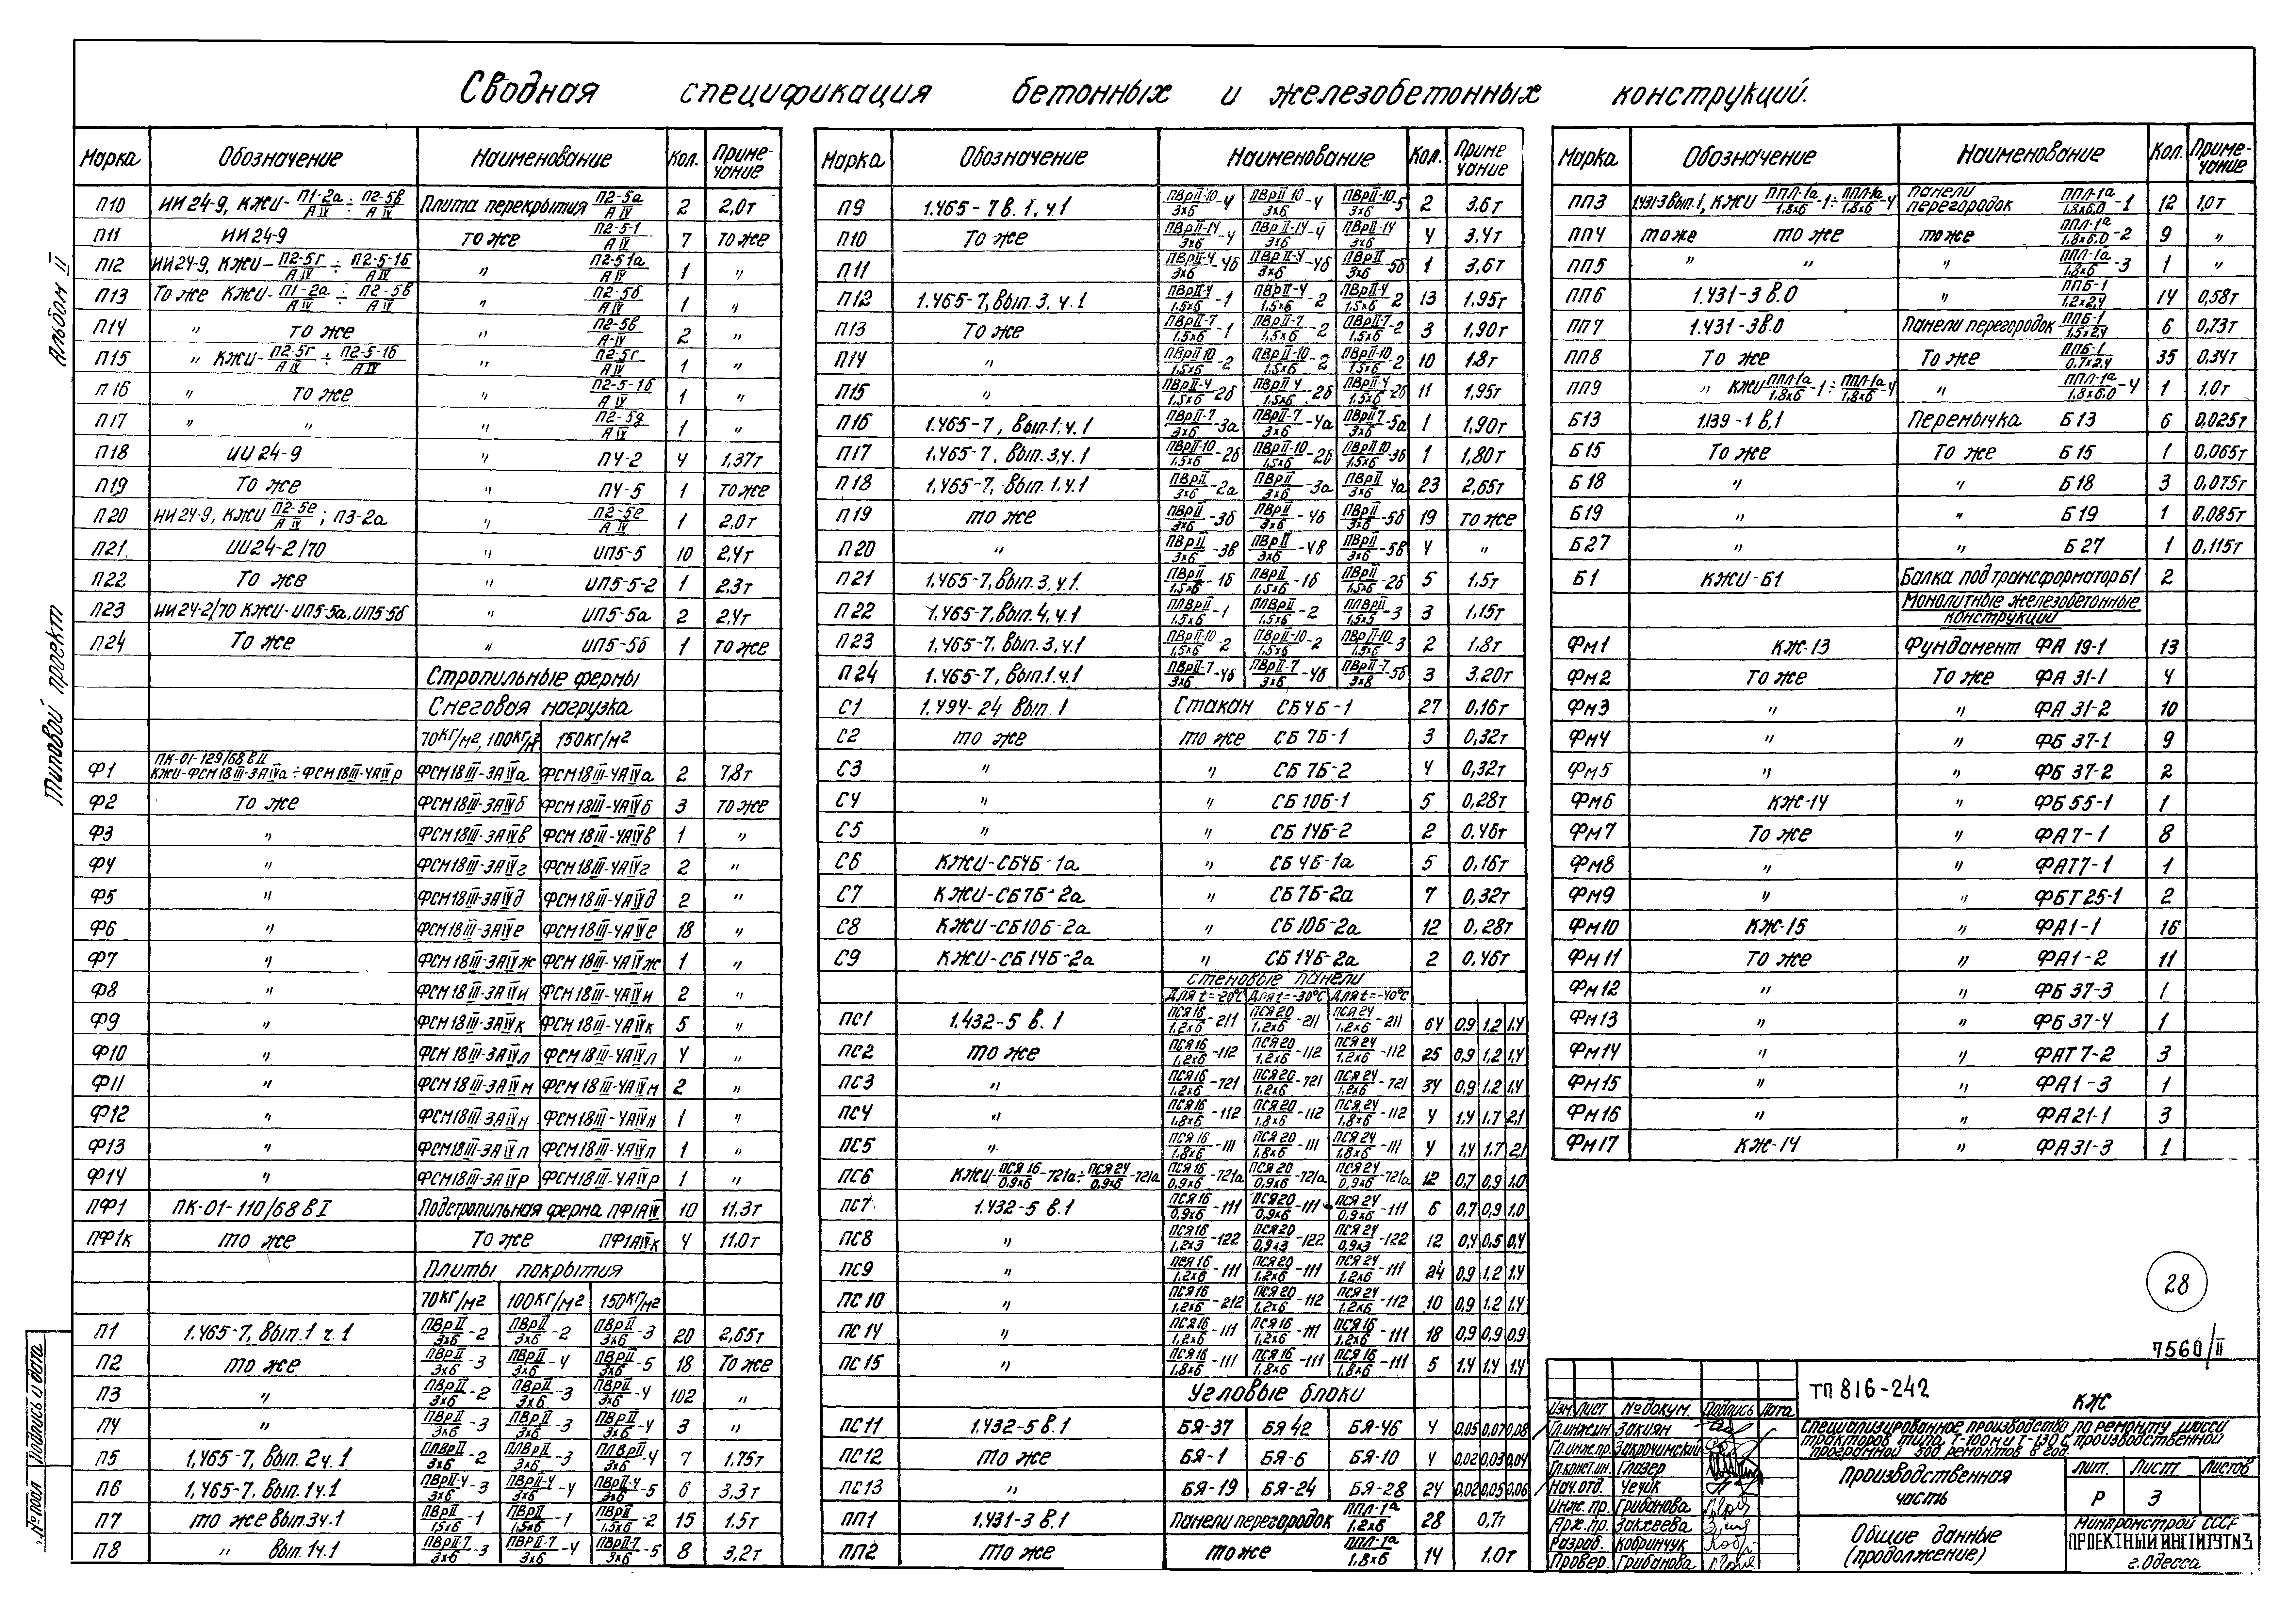 Сводная спецификация бетонных и железобетонных конструкций.
Альбом II
Типовой проект
Подпись и дата
Марка | Обозначение | Наименование | Кол. | Приме-чание
П10 | ИИ 24-9, КЖИ- П1-2а/АIV ÷ П2-5в/АIV | Плита перекрытия П2-5а/АIV | 2 | 2,0т
П11 | ИИ 24-9 | то же П2-5-1/АIV | 7 | то же
П12 | ИИ 24-9, КЖИ- П2-5г/АIV ÷ П2-5-1б/АIV | " П2-51а/АIV | 1 | "
П13 | То же КЖИ- П1-2а/АIV ÷ П2-5в/АIV | " П2-5б/АIV | 1 | "
П14 | " то же | " П2-5в/А-IV | 2 | "
П15 | " КЖИ- П2-5г/АIV ÷ П2-5-1б/АIV | " П2-5г/АIV | 1 | "
П16 | " То же | " П2-5-1б/АIV | 1 | "
П17 | " " | " П2-5д/АIV | 1 | "
П18 | ИИ 24-9 | " ПУ-2 | 4 | 1,37т
П19 | То же | " ПУ-5 | 1 | то же
П20 | ИИ 24-9, КЖИ П2-5е/АIV ; П3-2а | " П2-5е/АIV | 1 | 2.0т
П21 | ИИ24-2/70 | " ИП5-5 | 10 | 2,4т
П22 | То же | " ИП5-5-2 | 1 | 2,3т
П23 | ИИ 24-2/70 КЖИ-ИП5-5а, ИП5-5б | " ИП5-5а | 2 | 2,4т
П24 | То же | " ИП5-5б | 1 | то же
Стропильные фермы
Снеговая нагрузка
70кг/м2, 100кг/м2 | 150кг/м2
Ф1 | ПК-01-129/68 в II КЖИ-ФСМ18III-3АIVа÷ФСМ18III-4АIVр | ФСМ18III-3АIVа | ФСМ18III-4АIVа | 2 | 7,8т
Ф2 | То же | ФСМ18III-3АIVб | ФСМ18III-4АIVб | 3 | то же
Ф3 | " | ФСМ18III-3АIVв | ФСМ18III-4АIVв | 1 | "
Ф4 | " | ФСМ18III-3АIVг | ФСМ18III-4АIVг | 2 | "
Ф5 | " | ФСМ18III-3АIVд | ФСМ18III-4АIVд | 2 | "
Ф6 | " | ФСМ18III-3АIVе | ФСМ18III-4АIVе | 18 | "
Ф7 | " | ФСМ18III-3АIVж | ФСМ18III-4АIVж | 1 | "
Ф8 | " | ФСМ18III-3АIVи | ФСМ18III-4АIVи | 2 | "
Ф9 | " | ФСМ18III-3АIVк | ФСМ18III-4АIVк | 5 | "
Ф10 | " | ФСМ18III-3АIVл | ФСМ18III-4АIVл | 4 | "
Ф11 | " | ФСМ18III-3АIVм | ФСМ18III-4АIVм | 2 | "
Ф12 | " | ФСМ18III-3АIVн | ФСМ18III-4АIVн | 1 | "
Ф13 | " | ФСМ18III-3АIVп | ФСМ18III-4АIVп | 1 | "
Ф14 | " | ФСМ18III-3АIVр | ФСМ18III-4АIVр | 1 | "
ПФ1 | ПК-01-110/68 в I | Подстропильная ферма ПФ1АIV | 10 | 11.3т
ПФ1к | то же | То же ПФ1АIVк | 4 | 11.0т
Плиты покрытия
70кг/м2 | 100кг/м2 | 150кг/м2
П1 | 1.465-7, вып.1 ч.1 | ПВрII/3х6-2 | ПВрII/3х6-2 | ПВрII/3х6-3 | 20 | 2,65т
П2 | то же | ПВрII/3х6-3 | ПВрII/3х6-4 | ПВрII/3х6-5 | 18 | То же
П3 | " | ПВрII/3х6-2 | ПВрII/3х6-3 | ПВрII/3х6-4 | 102 | "
П4 | " | ПВрII/3х6-3 | ПВрII/3х6-3 | ПВрII/3х6-4 | 3 | "
П5 | 1,465-7, вып. 2 ч.1 | ПЛВрII/3х6-2 | ПЛВрII/3х6-3 | ПЛВрII/3х6-4 | 7 | 1.75т
П6 | 1,465-7. вып.1ч.1 | ПВрII-4/3х6-3 | ПВрII-4/3х6-4 | ПВрII-4/3х6-5 | 6 | 3,3т
П7 | то же вып.3ч.1 | ПВрII/1.5х6-1 | ПВрII/1,5х6-1 | ПВрII/1,5х6-2 | 15 | 1.5т
П8 | " вып.1ч.1 | ПВрII-7/3х6-3 | ПВрII-7/3х6-4 | ПВрII-7/3х6-5 | 8 | 3,2т
Марка | Обозначение | Наименование | Кол. | Приме чание
П9 | 1.465-7 в. 1, ч.1 | ПВрII-10/3х6-4 | ПВрII 10/3х6-4 | ПВрII-10/3х6-5 | 2 | 3,6т
П10 | То же | ПВрII-14/3х6-4 | ПВрII-14/3х6-4 | ПВрII-14/3х6 | 4 | 3,4т
П11 | ПВрII-4/3х6-4б | ПВрII-4/3х6-4б | ПВрII/3х6-5б | 1 | 3,6т
П12 | 1.465-7, вып. 3, ч.1 | ПВрII-4/1,5х6-1 | ПВрII-4/1,5х6-2 | ПВрII-4/1,5х6-2 | 13 | 1,95т
П13 | То же | ПВрII-7/1.5х6-1 | ПВрII-7/1,5х6-2 | ПВрII-7/1.5х6-2 | 3 | 1,90т
П14 | " | ПВрII 10/1,5х6-2 | ПВрII-10/1,5х6-2 | ПВрII-10/1.5х6-2 | 10 | 1.8т
П15 | " | ПВрII-4/1,5х6-2б | ПВрII 4/1,5х6-2б | ПВрII-4/1.5х6-2б | 11 | 1,95т
П16 | 1.465-7, вып.1,ч.1 | ПВрII-7/3х6-3а | ПВрII-7/3х6-4а | ПВрII 7/3х6-5а | 1 | 1,90т
П17 | 1,465-7, вып.3,ч.1 | ПВрII-10/1.5х6-2б | ПВрII-10/1,5х6-2б | ПВрII-10/1,5х6-3б | 1 | 1,80т
П18 | 1,465-7, вып.1.ч.1 | ПВрII/3х6-2а | ПВрII/3х6-3а | ПВрII/3х6 4а | 23 | 2,65т
П19 | то же | ПВрII/3х6-3б | ПВрII/3х6-4б | ПВрII/3х6-5б | 19 | то же
П20 | " | ПВрII/3х6-3в | ПВрII/3х6-4в | ПВрII/3х6-5в | 4 | "
П21 | 1,465-7, вып.3,ч.1. | ПВрII/1,5х6-1б | ПВрII/1,5х6-1б | ПВрII/1,5х6-2б | 5 | 1.5т
П22 | 1.465-7, вып.4, ч.1 | ПЛВрII/1,5х6-1 | ПЛВрII/1,5х6-2 | ПЛВрII/1.5х5-3 | 3 | 1,15т
П23 | 1,465-7, вып.3,ч.1 | ПВрII-10/1,5х6-2 | ПВрII-10/1,5х6-2 | ПВрII-10/1,5х6-3 | 2 | 1,8т
П24 | 1.465-7, вып.1.ч.1 | ПВрII-7/3х6-4б | ПВрII-7/3х6-4б | ПВрII-7/3х8-5б | 3 | 3,20т
С1 | 1.494-24 вып.1 | Стакан СБ4Б-1 | 27 | 0,16т
С2 | то же | то же СБ 7Б-1 | 3 | 0,32т
С3 | " | " СБ 7Б-2 | 4 | 0,32т
С4 | " | " СБ 10Б-1 | 5 | 0,28т
С5 | " | " СБ 14Б-2 | 2 | 0.46т
С6 | КЖИ-СБ4Б-1а | " СБ 4Б-1а | 5 | 0,16т
С7 | КЖИ-СБ7Б-2а | " СБ 7Б-2а | 7 | 0,32т
С8 | КЖИ-СБ10Б-2а | " СБ 10Б-2а | 12 | 0,28т
С9 | КЖИ-СБ14Б-2а | " СБ 14Б-2а | 2 | 0,46т
Стеновые панели
Для t=-20°С | Для t=-30°С | Для t=-40°С
ПС1 | 1.432-5 в. 1 | ПСЯ16/1.2х6-211 | ПСЯ20/1,2х6-211 | ПСЯ24/1.2х6-211 | 64 | 0.9 | 1,2 | 1.4
ПС2 | то же | ПСЯ16/1,2х6-112 | ПСЯ20/1,2х6-112 | ПСЯ24/1.2х6-112 | 25 | 0.9 | 1,2 | 1,4
ПС3 | " | ПСЯ16/1,2х6-721 | ПСЯ20/1.2х6-721 | ПСЯ24/1,2х6-721 | 34 | 0,9 | 1.2 | 1.4
ПС4 | " | ПСЯ16/1,8х6-112 | ПСЯ20/1,8х6-112 | ПСЯ24/1,8х6-112 | 4 | 1,4 | 1.7 | 2,1
ПС5 | " | ПСЯ16/1.8х6-111 | ПСЯ20/1.8х6-111 | ПСЯ24/1.8х6-111 | 4 | 1,4 | 1.7 | 2,1
ПС6 | КЖИ-ПСЯ16/0,9х6-721а÷ПСЯ24/0,9х6-721а | ПСЯ16/0,9х6-721а | ПСЯ20/0,9х6-721а | ПСЯ24/0,9х6-721а | 12 | 0.7 | 0,9 | 1.0
ПС7 | 1.432-5 в.1 | ПСЯ16/0,9х6-111 | ПСЯ20/0,9х6-111 | ПСЯ24/0,9х6-111 | 6 | 0,7 | 0,9 | 1.0
ПС8 | " | ПСЯ16/1,2х3-122 | ПСЯ20/0,9х3-122 | ПСЯ24/0,9х3-122 | 12 | 0,4 | 0,5 | 0,4
ПС9 | " | ПСЯ16/1.2х6-111 | ПСЯ20/1.2х6-111 | ПСЯ24/1.2х6-111 | 24 | 0.9 | 1.2 | 1.4
ПС10 | " | ПСЯ16/1,2х6-212 | ПСЯ20/1.2х6-112 | ПСЯ24/1.2х6-112 | 10 | 0.9 | 1.2 | 1.4
ПС14 | " | ПСЯ16/1,2х6-111 | ПСЯ16/1.2х6-111 | ПСЯ16/1.2х6-111 | 18 | 0,9 | 0,9 | 0,9
ПС15 | " | ПСЯ16/1,8х6-111 | ПСЯ16/1,8х6-111 | ПСЯ16/1,8х6-111 | 5 | 1.4 | 1.4 | 1,4
Угловые блоки
ПС11 | 1.432-5 в.1 | БЯ-37 | БЯ 42 | БЯ-46 | 4 | 0,05 | 0,07 | 0,08
ПС12 | то же | БЯ-1 | БЯ-6 | БЯ-10 | 4 | 0,02 | 0,03 | 0,04
ПС13 | " | БЯ-19 | БЯ-24 | БЯ-28 | 24 | 0,02 | 0,05 | 0,06
ПП1 | 1.431-3 в.1 | Панели перегородок ППЛ-1а/1,2х6 | 28 | 0,7т
ПП2 | то же | то же ППЛ-1а/1,8х6 | 14 | 1.0т
Марка | Обозначение | Наименование | Кол. | Приме-чание
ПП3 | 1.431-3 вып.1, КЖИ ППЛ-1а/1,8х6-1÷ППЛ-1а/1,8х6-4 | Панели перегородок ППЛ-1а/1,8х6,0-1 | 12 | 1,0т
ПП4 | то же то же | то же ППЛ-1а/1,8х6.0-2 | 9 | "
ПП5 | " " | " ППЛ-1а/1,8х6-3 | 1 | "
ПП6 | 1.431-3 в.0 | " ППБ-1/1,2х2,4 | 14 | 0,58т
ПП7 | 1.431-3в.0 | Панели перегородок ППБ-1/1,5х2,4 | 6 | 0,73т
ПП8 | То же | То же ППБ-1/0.7х2,4 | 35 | 0.34т
ПП9 | " КЖИ ППЛ-1а/1.8х6-1÷ППЛ-1а/1,8х6-4 | " ППЛ-1а/1.8х6,0-4 | 1 | 1.0т
Б13 | 1.139-1 в.1 | Перемычка Б13 | 6 | 0,025т
Б15 | То же | То же Б15 | 1 | 0,065т
Б18 | " | " Б18 | 3 | 0,075т
Б19 | " | " Б19 | 1 | 0,085т
Б27 | " | " Б27 | 1 | 0,115т
Б1 | КЖИ-Б1 | Балка под трансформатор Б1 | 2
Монолитные железобетонные
конструкции
Фм1 | КЖ-13 | Фундамент ФА 19-1 | 13
Фм2 | То же | То же ФА 31-1 | 4
Фм3 | " | " ФА 31-2 | 10
Фм4 | " | " ФБ 37-1 | 9
Фм5 | " | " ФБ 37-2 | 2
Фм6 | КЖ-14 | " ФБ 55-1 | 1
Фм7 | То же | " ФА7-1 | 8
Фм8 | " | " ФАТ7-1 | 1
Фм9 | " | " ФБТ25-1 | 2
Фм10 | КЖ-15 | " ФА1-1 | 16
Фм11 | То же | " ФА1-2 | 11
Фм12 | " | " ФБ 37-3 | 1
Фм13 | " | " ФБ 37-4 | 1
Фм14 | " | " ФАТ7-2 | 3
Фм15 | " | " ФА1-3 | 1
Фм16 | " | " ФА21-1 | 3
Фм17 | КЖ-14 | " ФА31-3 | 1
28
7560/II
ТП 816-242 КЖ
Изм. Лист № докум. Подпись Дата
Гл.инж.ин. Закиян
Гл.инж.пр. Закрочимский
Гл.конст.ин. Глазер
Нач.отд. Чечик
Инж. пр. Грибанова
Арх. пр. Закхеева
Разраб. Кобринчук
Провер. Грибанова
Специализированное производство по ремонту шасси
тракторов типа Т-100м и Т-130 с производственной
программой 500 ремонтов в год
Производственная
часть
Лит. Лист Листов
Р 3
Общие данные
(продолжение)
Минпромстрой СССР
ПРОЕКТНЫЙ ИНСТИТУТ №3
г. Одесса